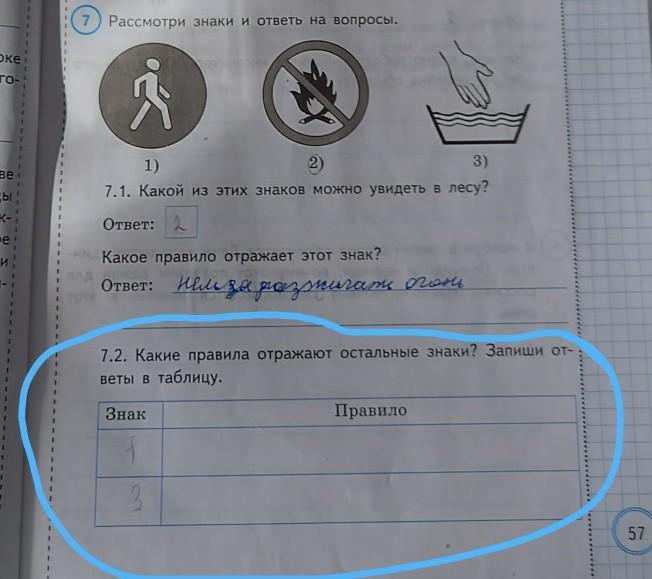 7 Рассмотри знаки и ответь на вопросы.
1) 2) 3)
7.1. Какой из этих знаков можно увидеть в лесу?
Ответ: 2
Какое правило отражает этот знак?
Ответ: Нельзя разжигать огонь
7.2. Какие правила отражают остальные знаки? Запиши от-
веты в таблицу.
Знак Правило
1
3
57